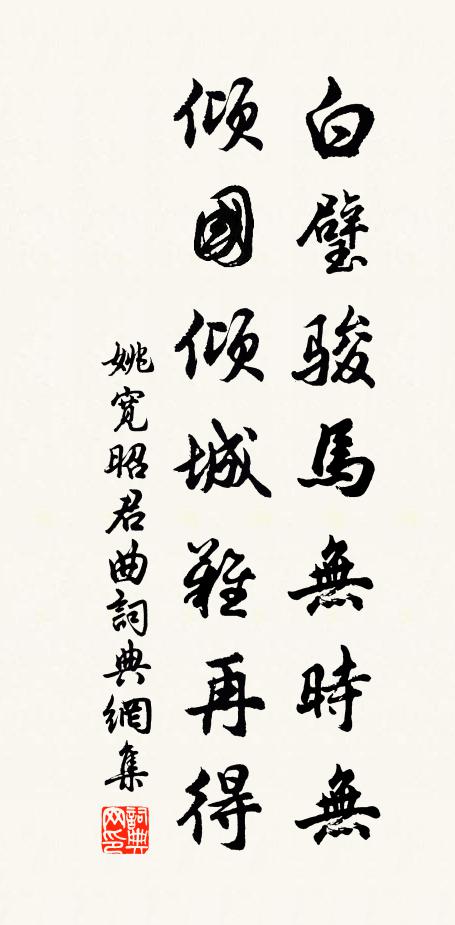 白璧駿馬無時無
傾國傾城難再得
姚寬昭君曲詞典網集
詞典网印